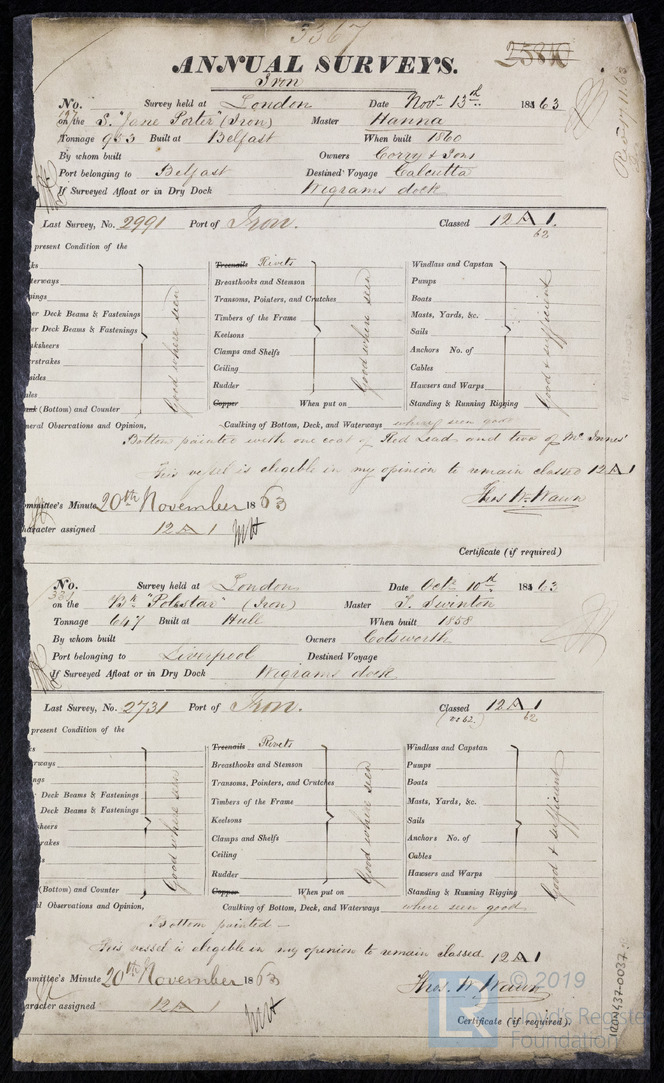 5367
25840
ANNUAL SURVEYS.
Iron
No. Survey held at London Date Novr 13th 1863
on the S. "Jane Porter" (Iron) Master Hanna
Tonnage 953 Built at Belfast When built 1860
By whom built Owners Corry & Sons
Port belonging to Belfast Destined Voyage Calcutta
If Surveyed Afloat or in Dry Dock Wigrams dock
Last Survey, No. 2991 Port of Iron. Classed 12 A 1.
62
present Condition of the
Treenails Rivets
Windlass and Capstan
Breasthooks and Stemson
Pumps
Transoms, Pointers, and Crutches
Boats
Deck Beams & Fastenings
Timbers of the Frame
Masts, Yards, &c.
Deck Beams & Fastenings
Keelsons
Sails
Clamps and Shelfs
Anchors No. of
Ceiling
Cables
Rudder
Hawsers and Warps
(Bottom) and Counter
Copper When put on
Standing & Running Rigging
Good where seen
Good where seen
Good & sufficient
Observations and Opinion, Caulking of Bottom, Deck, and Waterways where seen good
Bottom painted with one coat of Red Lead and two of Mc Innes'
This vessel is eligible in my opinion to remain classed 12 A 1
Committee's Minute 20th November 1863
Thos W. Wawn
Character assigned 12 A 1
Certificate (if required)
No. Survey held at London Date Octr 10th 1863
on the Bk "Polestar" (Iron) Master T. Swinton
Tonnage 647 Built at Hull When built 1858
By whom built Owners Colsworth
Port belonging to Liverpool Destined Voyage
If Surveyed Afloat or in Dry Dock Wigrams dock
Last Survey, No. 2731 Port of Iron. Classed 12 A 1
62
present Condition of the
Treenails Rivets
Windlass and Capstan
Breasthooks and Stemson
Pumps
Transoms, Pointers, and Crutches
Boats
Deck Beams & Fastenings
Timbers of the Frame
Masts, Yards, &c.
Deck Beams & Fastenings
Keelsons
Sails
Clamps and Shelfs
Anchors No. of
Ceiling
Cables
Rudder
Hawsers and Warps
(Bottom) and Counter
Copper When put on
Standing & Running Rigging
Good where seen
Good where seen
Good & sufficient
Observations and Opinion, Caulking of Bottom, Deck, and Waterways where seen good
Bottom painted —
This vessel is eligible in my opinion to remain classed 12 A 1
Committee's Minute 20th November 1863
Thos W. Wawn
Character assigned 12 A 1
Certificate (if required).
LR © 2019
Lloyd's Register
Foundation